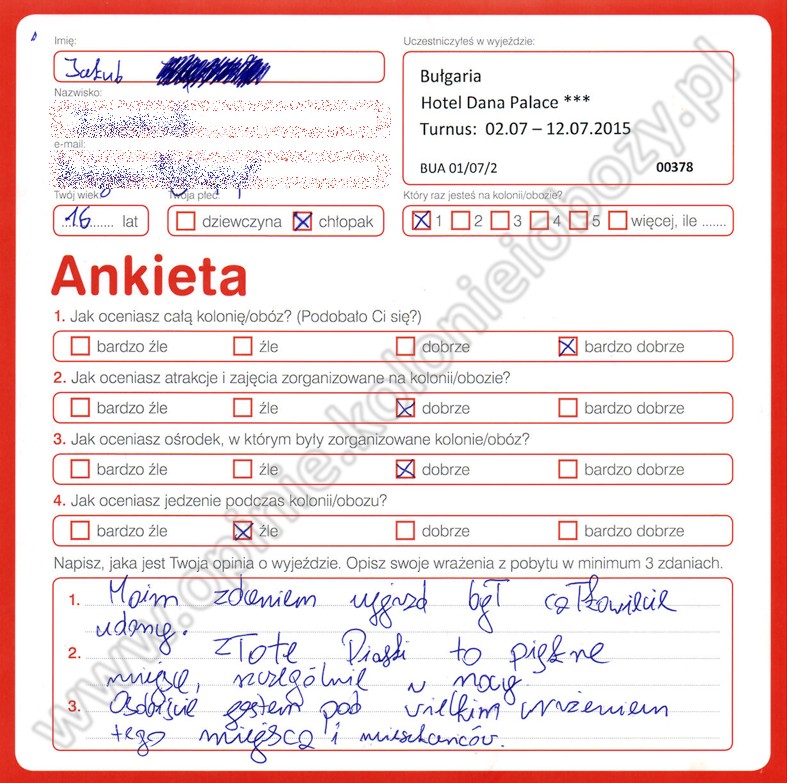 Imię:
Jakub
Uczestniczyłeś w wyjeździe:
Bułgaria
Hotel Dana Palace ***
Turnus: 02.07 – 12.07.2015
BUA 01/07/2 00378
Nazwisko:
e-mail:
Twój wiek:
16 lat
Twoja płeć:
dziewczyna chłopak
Który raz jesteś na kolonii/obozie?
1 2 3 4 5 więcej, ile .......
Ankieta
1. Jak oceniasz całą kolonię/obóz? (Podobało Ci się?)
bardzo źle źle dobrze bardzo dobrze
2. Jak oceniasz atrakcje i zajęcia zorganizowane na kolonii/obozie?
bardzo źle źle dobrze bardzo dobrze
3. Jak oceniasz ośrodek, w którym były zorganizowane kolonie/obóz?
bardzo źle źle dobrze bardzo dobrze
4. Jak oceniasz jedzenie podczas kolonii/obozu?
bardzo źle źle dobrze bardzo dobrze
Napisz, jaka jest Twoja opinia o wyjeździe. Opisz swoje wrażenia z pobytu w minimum 3 zdaniach.
1. Moim zdaniem wyjazd był całkowicie
udany.
2. Złote Piaski to piękne
miejsce, szczególnie w nocy.
3. Osobiście jestem pod wielkim wrażeniem
tego miejsca i mieszkańców.
www.opinie.kolonieiobozy.pl